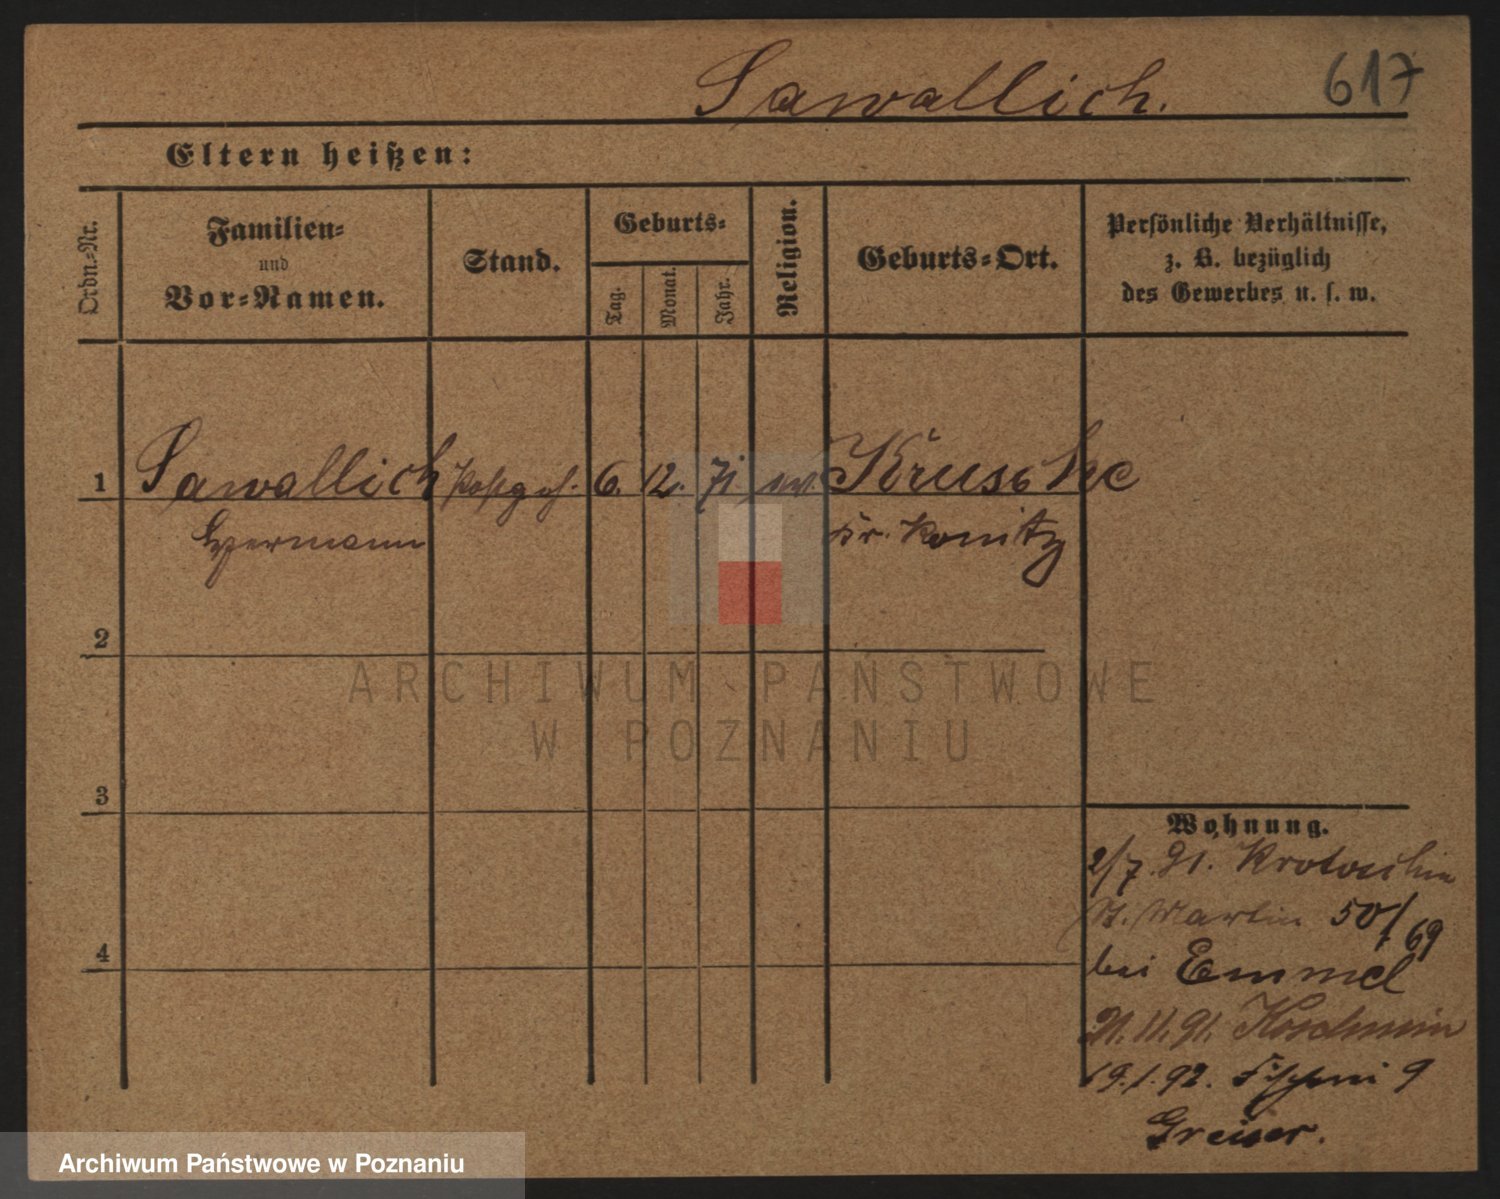 Sawallich. 617
Eltern heißen:
Ordn.-Nr.
Familien-
und
Vor-Namen.
Stand.
Geburts-
Tag.
Monat.
Jahr.
Religion.
Geburts-Ort.
Persönliche Verhältnisse,
z. B. bezüglich
des Gewerbes u. s. w.
1 Sawallich Postgeh. 6. 12. 71 Kruschke
Hermann Kr. Konitz
2
3
4
Wohnung.
2/7. 91. Krotoschin
St. Martin 50/69
bei Emmel
21.11.91. Koschmin
19.1.92. 9
Greiser.
ARCHIWUM PAŃSTWOWE
W POZNANIU
Archiwum Państwowe w Poznaniu